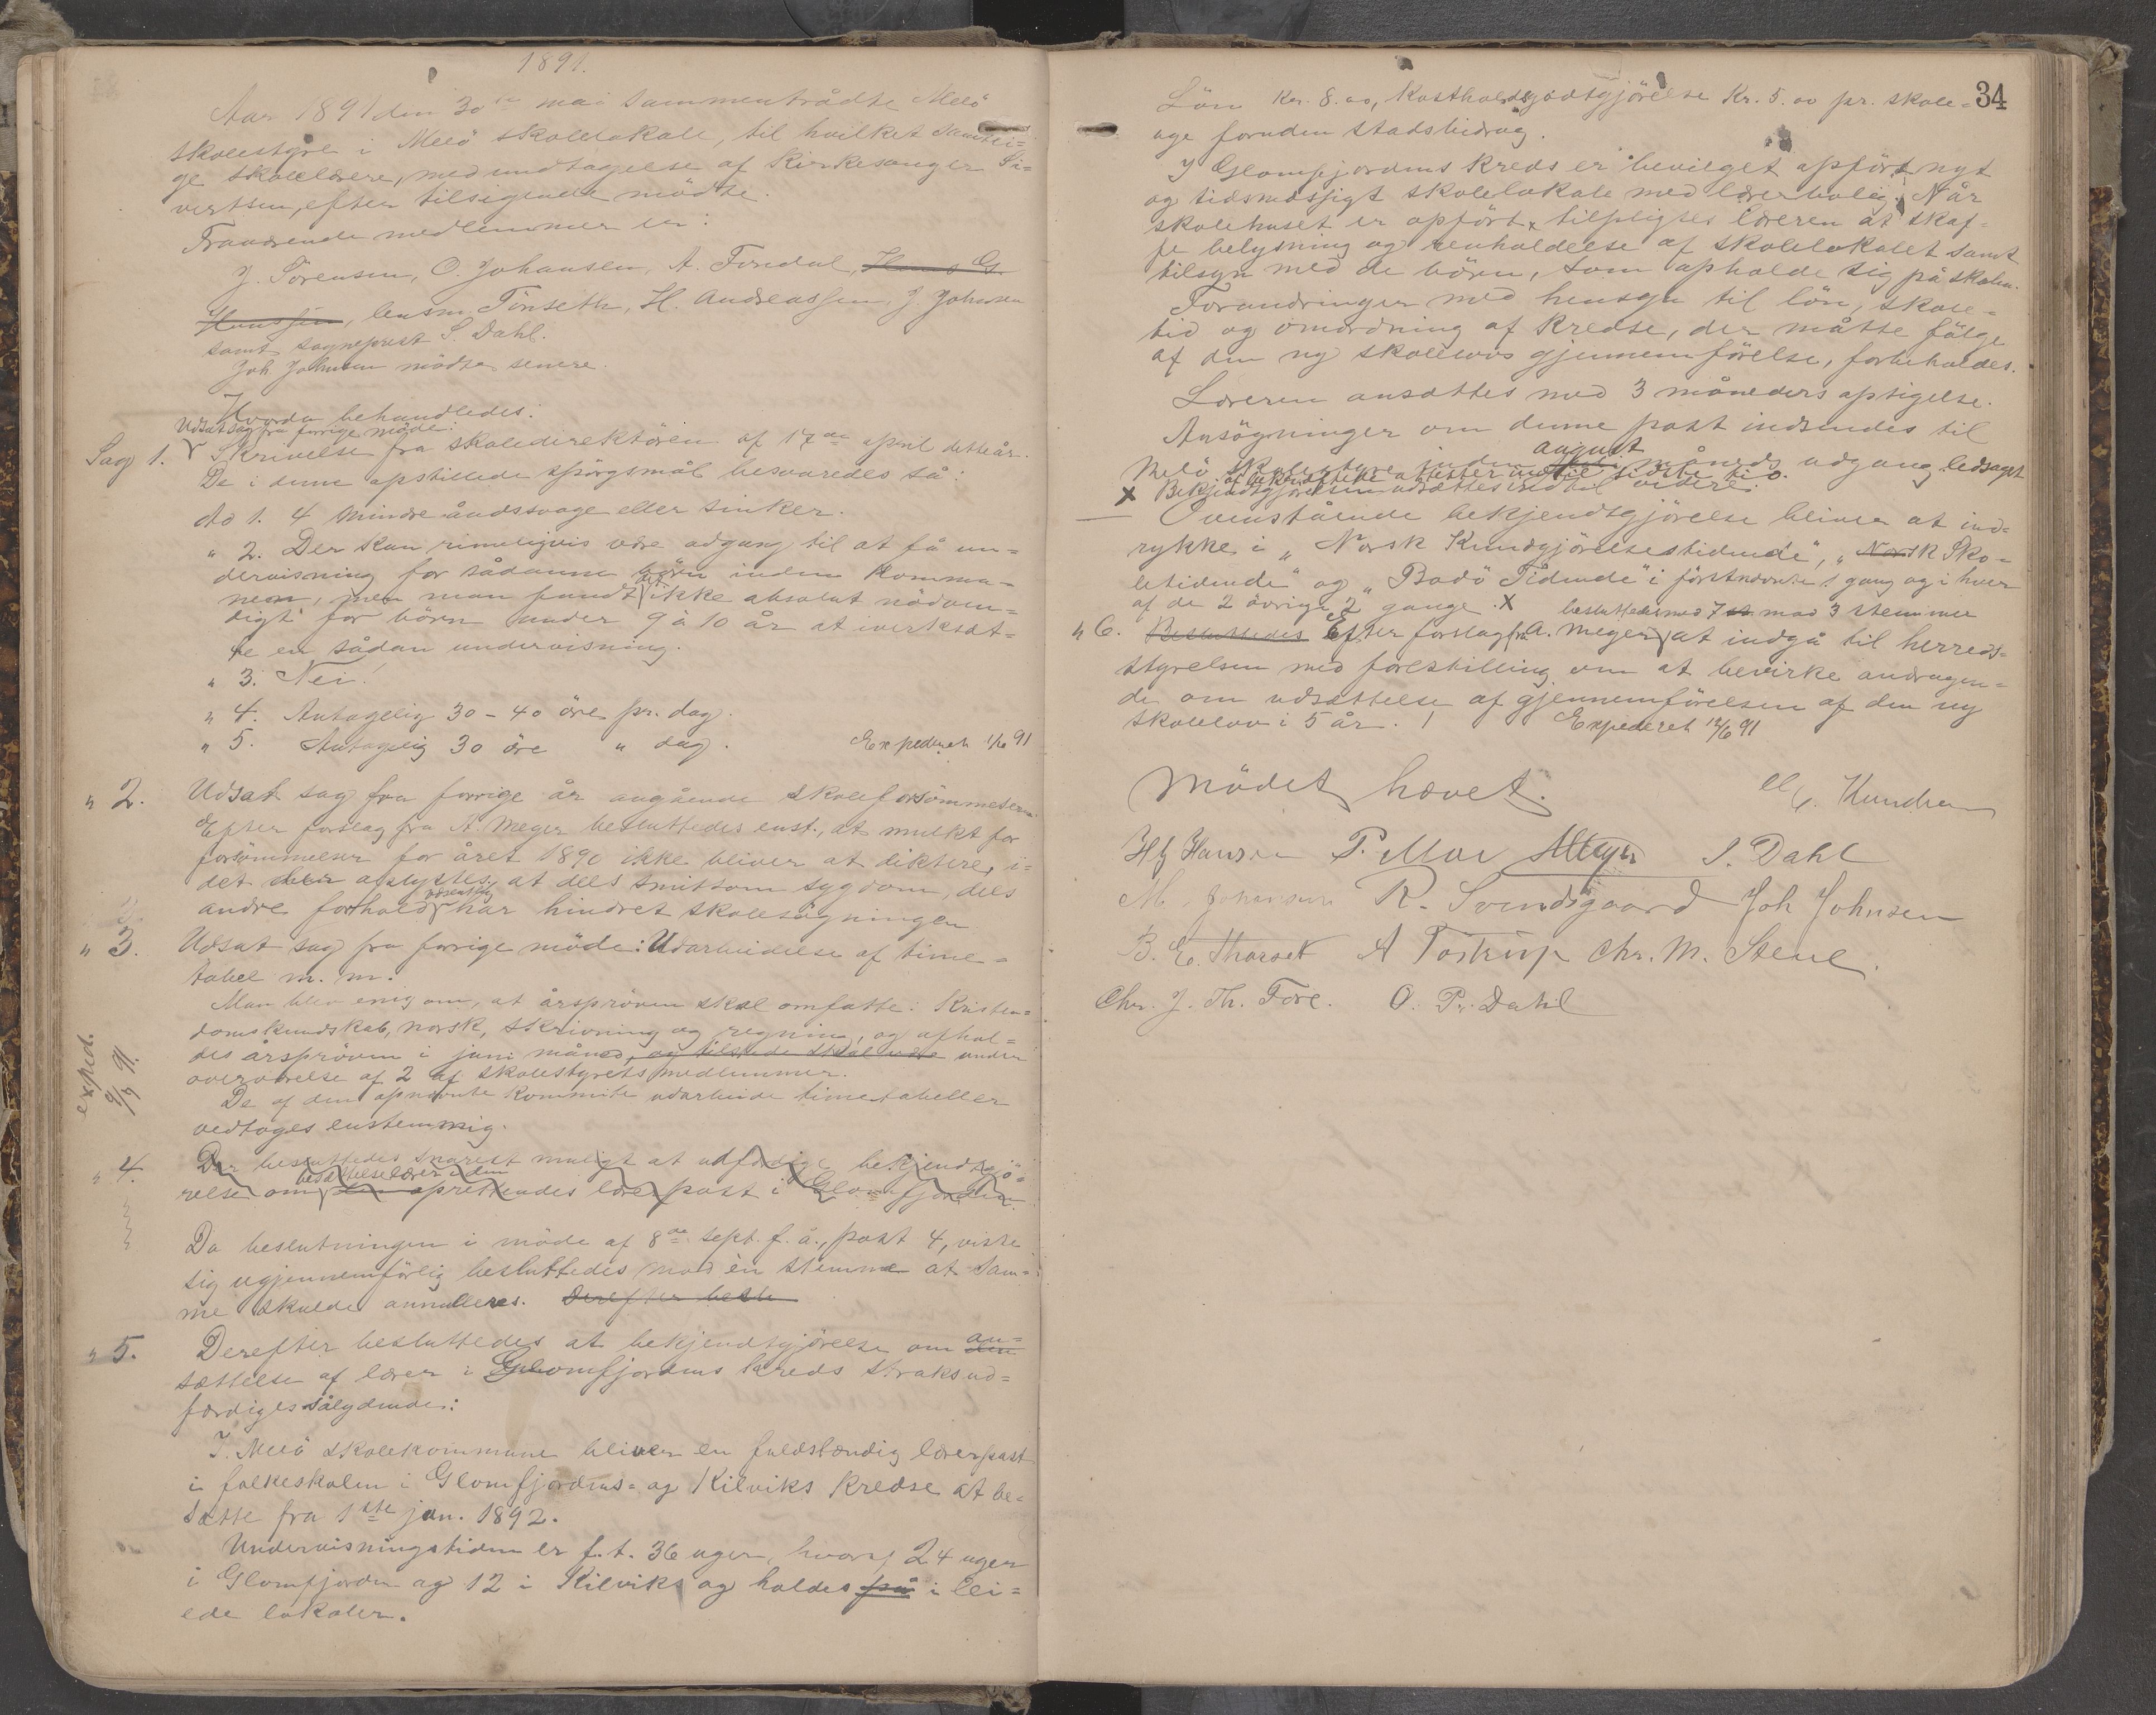 1891.
Aar 1891 den 30te mai sammentrådte Melö
skolestyre i Melö skolelokale, til hvilket samtli=
ge skolelærere, med undtagelse af kirkesanger Si=
vertsen, efter tilsigende mödte.
Fraværende medlemmer er:
J. Sörensen, O. Johansen, A. Forsdal, Hans G.
Hanssen, lensm. Tönseth, H. Andreassen, J. Johnsen
samt sogneprest S. Dahl.
Joh Johnsen mödte senere.
Hvorda behandledes:
Udsat sag fra forrige möde:
Sag 1. Skrivelse fra skoledirektören af 17de april dette år.
De i denne opstillede spörgsmål besvaredes så:
Ad 1. 4 mindre åndssvage eller sinker.
" 2. Der kan rimeligvis være adgang til at få un=
dervisning for sådanne börn inden kommu=
nen, men man fandt det ikke absolut nödven=
digt for börn under 9 à 10 år at iverksæt=
te en sådan undervisning.
" 3. Nei!
" 4. Antagelig 30 - 40 öre pr. dag.
" 5. Antagelig 30 öre " dag. Expederet 1/6 91
" 2. Udsat sag fra forrige år angående skoleforsömmelserne
Efter forslag fra A. Meyer besluttedes enst., at mulkt for
forsömmelser for året 1890 ikke bliver at diktere, i=
det der oplystes, at dels smitsom sygdom, dels
andre forhold væsentlig har hindret skolesögningen
" 3. Udsat sag fra forrige möde: Udarbeidelse af time=
tabel m. m.
Man blev enig om, at årspröven skal omfatte: Kristen=
domskundskab, norsk, skrivning og regning, og afhol=
des årspröven i juni måned, og tilstede skal være under
overværelse af 2 af skolestyrets medlemmer.
De af den opnævnte komite udarbeide timetabeller
vedtoges enstemmig.
exped. 9/9 91.
" 4. Der besluttedes snarest muligt at udfærdige bekjendtgjö=
besættelse lærer i den
relse om den oprettendes lærerpost i Glomfjorden.
Da beslutningen i möde af 8de sept. f. å., post 4, viste
sig ugjennemförlig besluttedes mod èn stemme at sam=
me skulde annulleres. Derefter beslu
" 5. Derefter besluttedes at bekjendtgjörelse om den an=
sættelse af lærer i Glomfjordens kreds straks ud=
færdiges sålydende:
I Melö skolekommune bliver en fuldstændig lærerpost
i folkeskolen i Glomfjordens= og Kilviks kredse at be=
sætte fra 1ste jan. 1892.
Undervisningstiden er f. t. 36 uger, hvoraf 24 uger
i Glomfjorden og 12 i Kilviks og holdes på i lei=
ede lokaler.
34
Lön Kr. 8.00, Kostholdsgodtgjörelse Kr. 5.00 pr. skole=
uge foruden stadsbidrag.
I Glomfjordens kreds er bevilget opfört nyt
og tidsmæssigt skolelokale med lærerbolig. Når
skolehuset er opfört, tilpligtes læreren at skaf=
fe belysning og renholdelse af skolelokalet samt
tilsyn med de börn, som opholde sig på skolen.
Forandringer med hensyn til lön, skole=
tid og omordning af kredse, der måtte fölge
af den ny skolelovs gjennemförelse, forbeholdes.
Læreren ansættes med 3 måneders opsigelse.
Ansögninger om denne post indsendes til
august
Melö skolestyre inden måneds udgang ledsaget
af bekræftede attester indtil sidste tid.
x Bekjendtgjörelsen udsættes indtil videre.
Ovenstående bekjendtgjörelse bliver at ind=
rykke i „Norsk Kundgjörelsestidende”, „Norsk Sko=
letidende” og „Bodö Tidende” i förstnævnte 1 gang og i hver
af de 2 övrige 2 gange. x besluttedes med 7 st mod 3 stemmer
" 6. Besluttedes Efter forslag fra A. Meyer at indgå til herreds=
styrelsen med forestilling om at bevirke andragen=
de om udsættelse af gjennemförelsen af den ny
skolelov i 5 år. ! Expederet 12/6 91
Mödet hævet.
Knudsen
Hans Hansen P. Moe AMeyer S. Dahl
M. Johansen R. Svendsgaard Joh Johnsen
B. E. Tharset A Tostrup Chr. M. Stene.
Chr. J. Th. Fore. O. Pr. Dahl